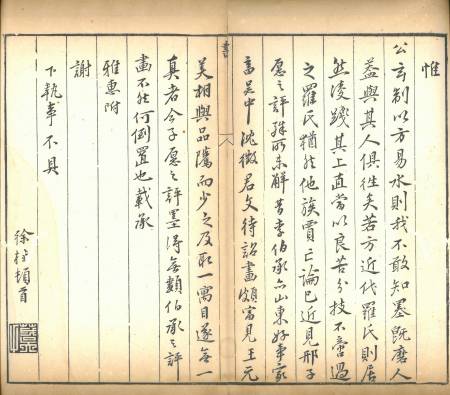 惟
公玄制以方易水則我不敢知墨既磨人
益與其人俱徃矣若方近代羅氏則居
然淩踐其上直當以良苦分技不啻過
之羅氏猶然他族賈亡論已近見邢子
愿之評殊所未解昔李伯承亦山東好事家
畜吳中沈徵君文待詔畫頗富見王元
美相與品隲而少之及取一寓目遂無一
真者今子愿之評墨得無類伯承之評
畫不然何倒置也載承
雅惠附
謝
下執事不具
徐桂頓首